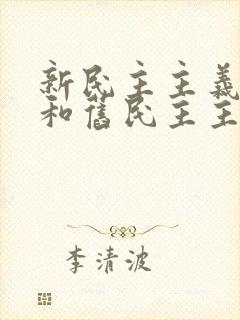 新民主主義
和舊民主主
李清波